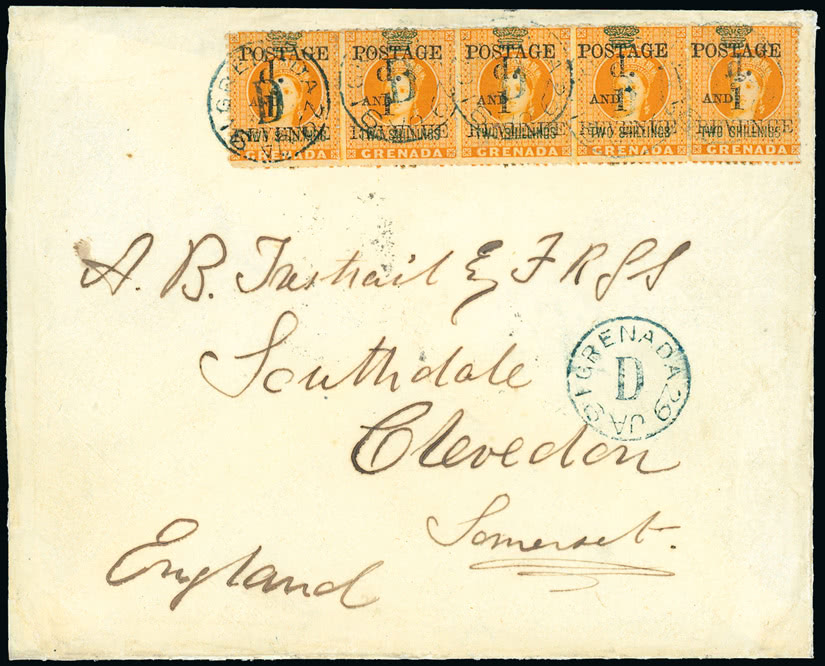 POSTAGE POSTAGE POSTAGE POSTAGE POSTAGE
d. d. d. d. d.
AND 1 AND 1 AND 1 AND 1 AND 1
REVENUE REVENUE REVENUE REVENUE
TWO SHILLINGS TWO SHILLINGS TWO SHILLINGS TWO SHILLINGS TWO SHILLINGS
GRENADA GRENADA GRENADA GRENADA GRENADA
A. B. Treshail Esq F R G S
Southdale
GRENADA
D
29 JA 91
Clevedon
Somerset.
England